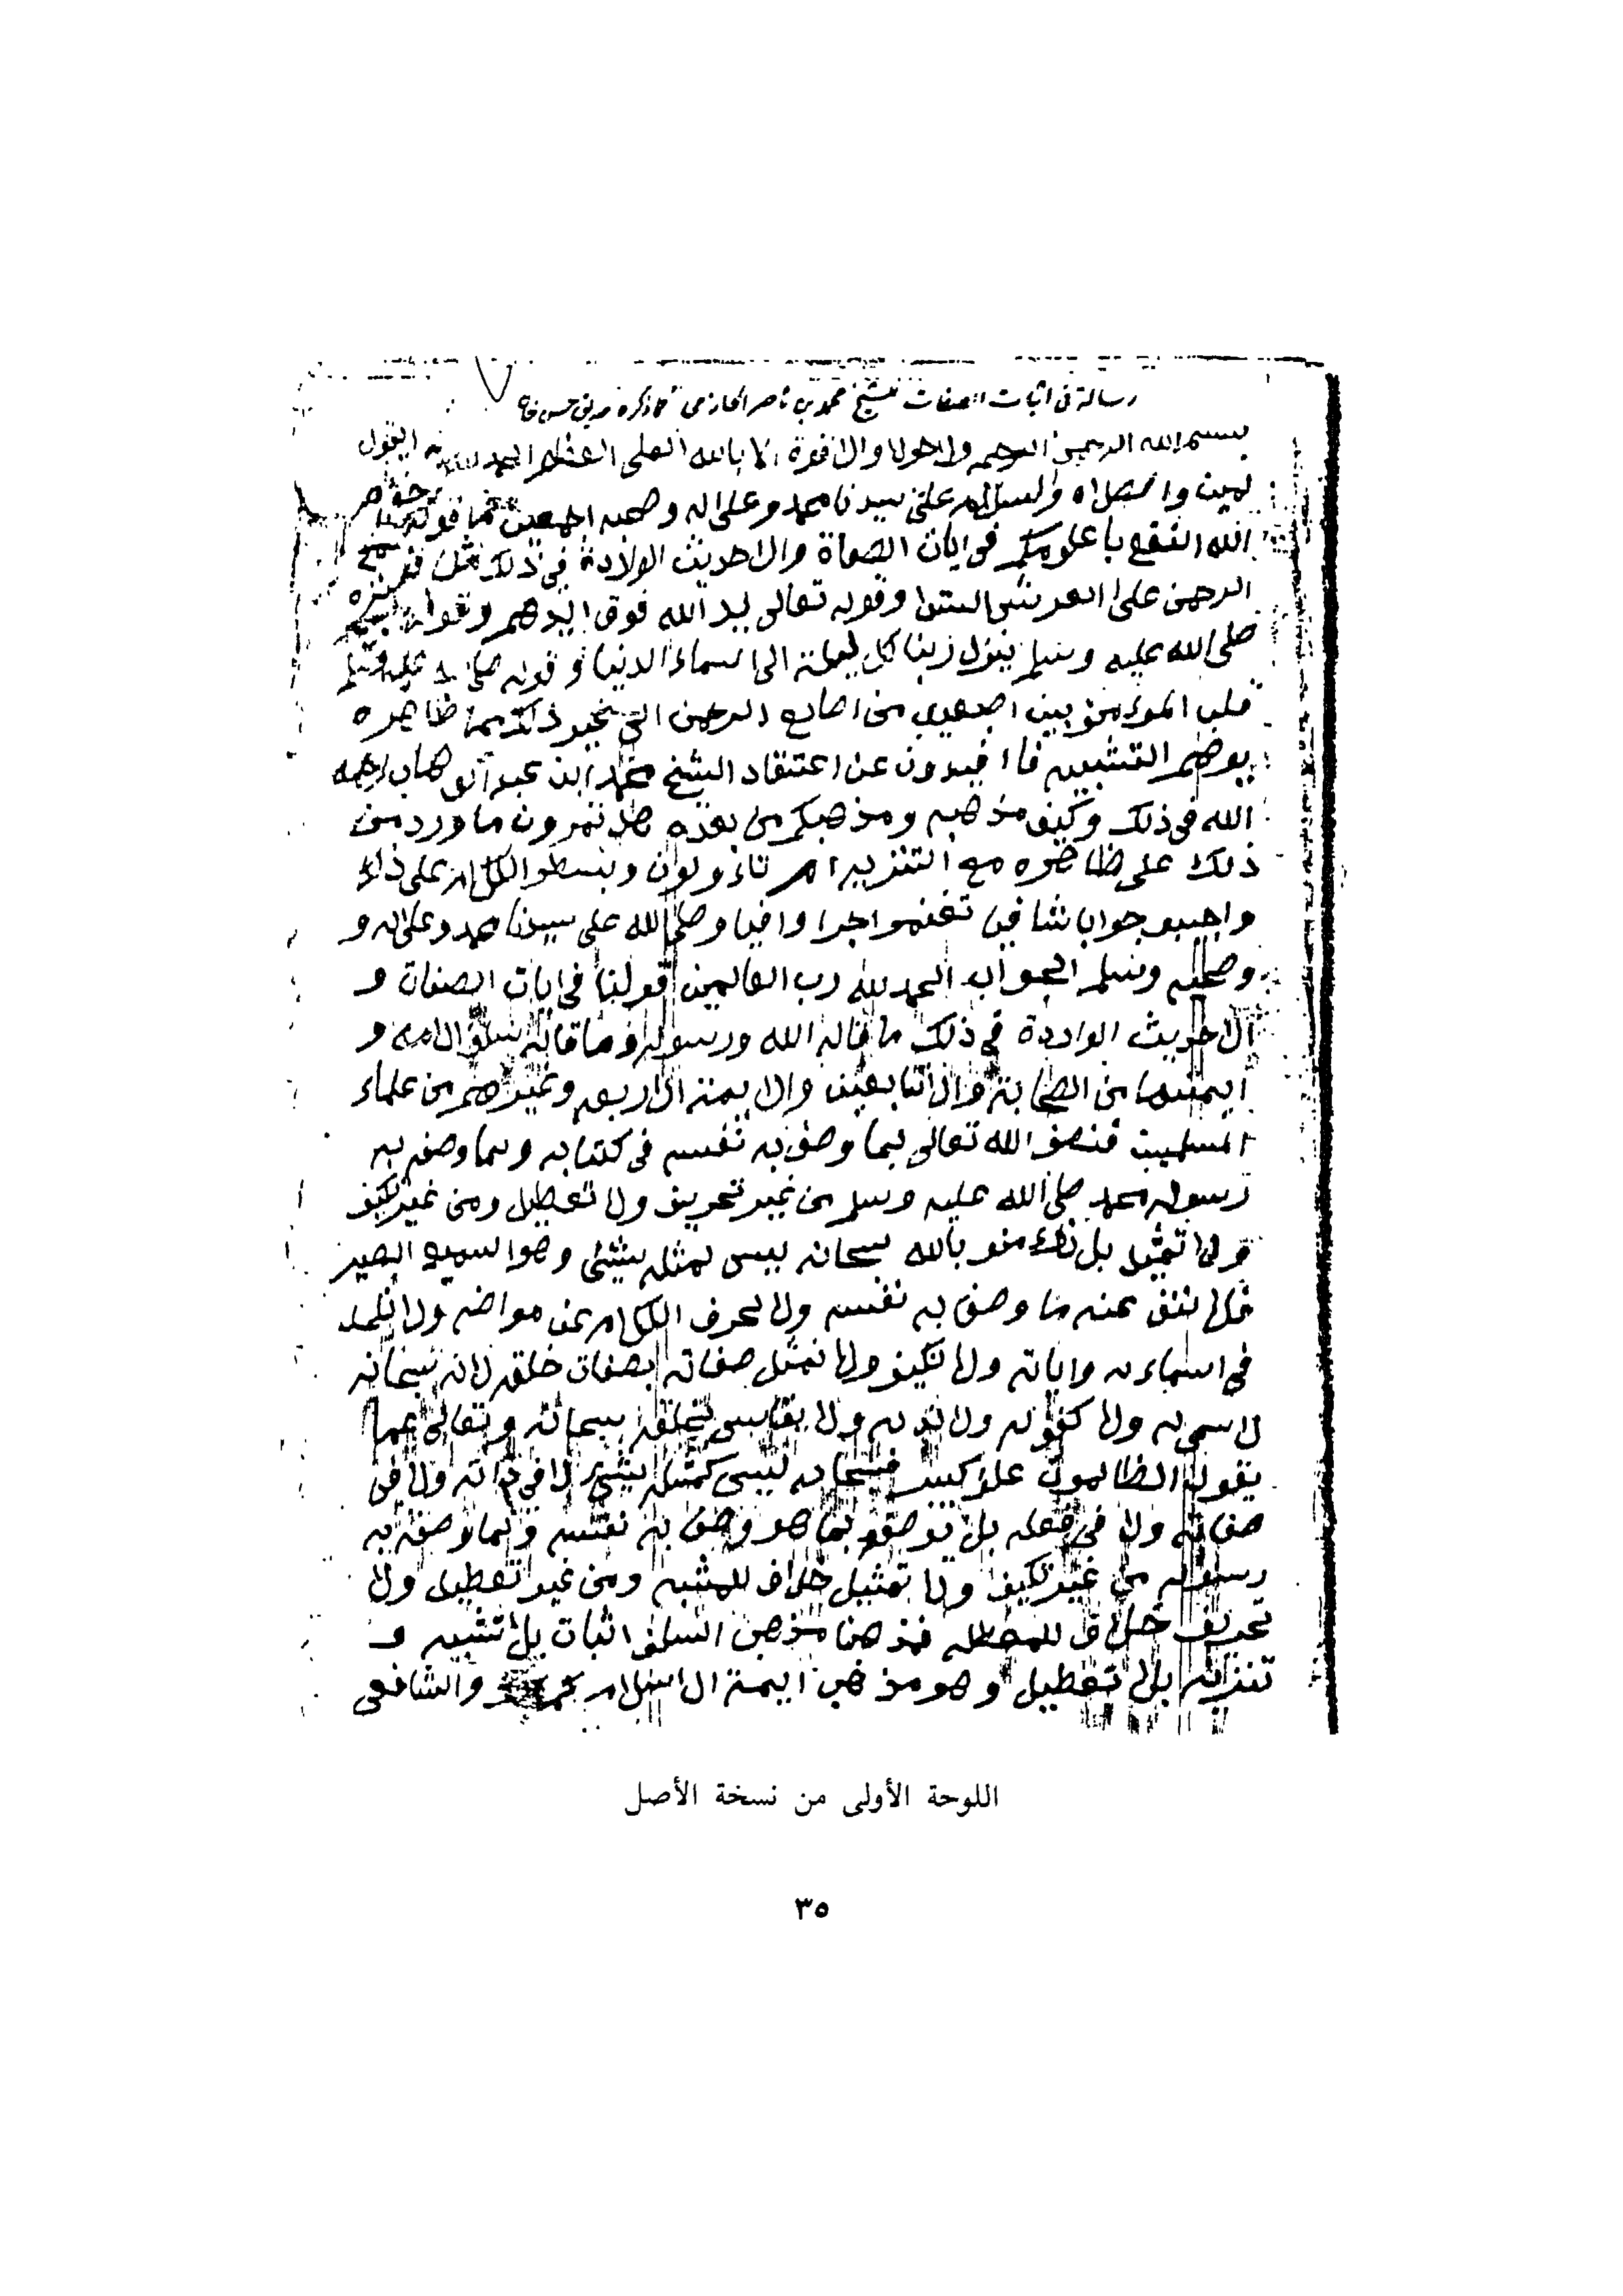 رسالة في اثبات الصفات للشيخ محمد بن ناصر الحازمي كما ذكره صديق حسن خان
بسم الله الرحمن الرحيم ولا حولا والا قوة الا بالله العلي العظيم الحمد لله
لمين والصلاه والسلام على سيدنا محمد وعلى اله وصحبه اجمعين ما قولكم
الله النفع باعلومكم في ايات الصفاة والاحديث الوالادة في ذلك مثل
الرحمن على العرش الستوا وقوله تعالى يد الله فوق ايدهم وقوله
صلى الله عليه وسلم ينزل ربنا كل ليلة الى السماء الدنيا وقوله صلى الله عليه وسلم
قلب المؤمن بين اصبعين من اصابع الرحمن الى غير ذلك مما ظاهره
يوهم التشبيه فاافيدون عن اعتقاد الشيخ محمد ابن عبد الوهاب رحمه
الله في ذلك وكيف مذهبه ومذهبكم من بعده هل تمرون ما ورد من
ذلك على ظاهره مع التنزيه ام تاؤولون وبنسطو الكلام على ذلك
واجيبو جوابا شافين تغنمو اجرا وافيا وصلى الله على سيدنا محمد وعلى اله و
وصحبه وسلم الجواب الحمد لله رب العالمين قولنا في ايات الصفات و
الاحديث الواردة في ذلك ما قاله الله ورسوله وما قاله سلف الامه و
ايمتها من الصحابة والاتابعين والايمة الاربعه وغيرهم من علماء
المسلمين فنصف الله تعالى بما وصف به نفسه في كتابه وبما وصفه به
رسوله محمد صلى الله عليه وسلم من غير تحريف ولا تعطيل ومن غير تكيف
ولا تمثيل بل نؤمنو بالله سبحانه ليس لمثله شيئ وهوا السميع البصير
فلا ننف عنه ما وصف به نفسه ولا نحرف الكلام عن مواضه ولا نلحد
في اسماءه واياته ولا نكيف ولا نمثل صفاته بصفات خلقه لانه سبحانه
لا سمي له ولا كفو له ولا ند له ولا يقاس بخلقه سبحانه وتعالى عما
يقول الظالمون علو كبير فسبحانه ليس كمثله شيئ لا في ذاته ولا في
صفاته ولا في فعله بل نوصفه بما هو وصف به نفسه وبما وصفه به
رسوله من غير تكيف ولا تمثيل خلاف للمشبه ومن غير تعطيل ولا
تحريف خلاف للمعطله فمذهنا مذهب السلف اثبات بلا تشبيه و
تنزيه بلا تعطيل وهو مذهب ايمة الاسلام والشافعي
اللوحة الأولى من نسخة الأصل
٣٥